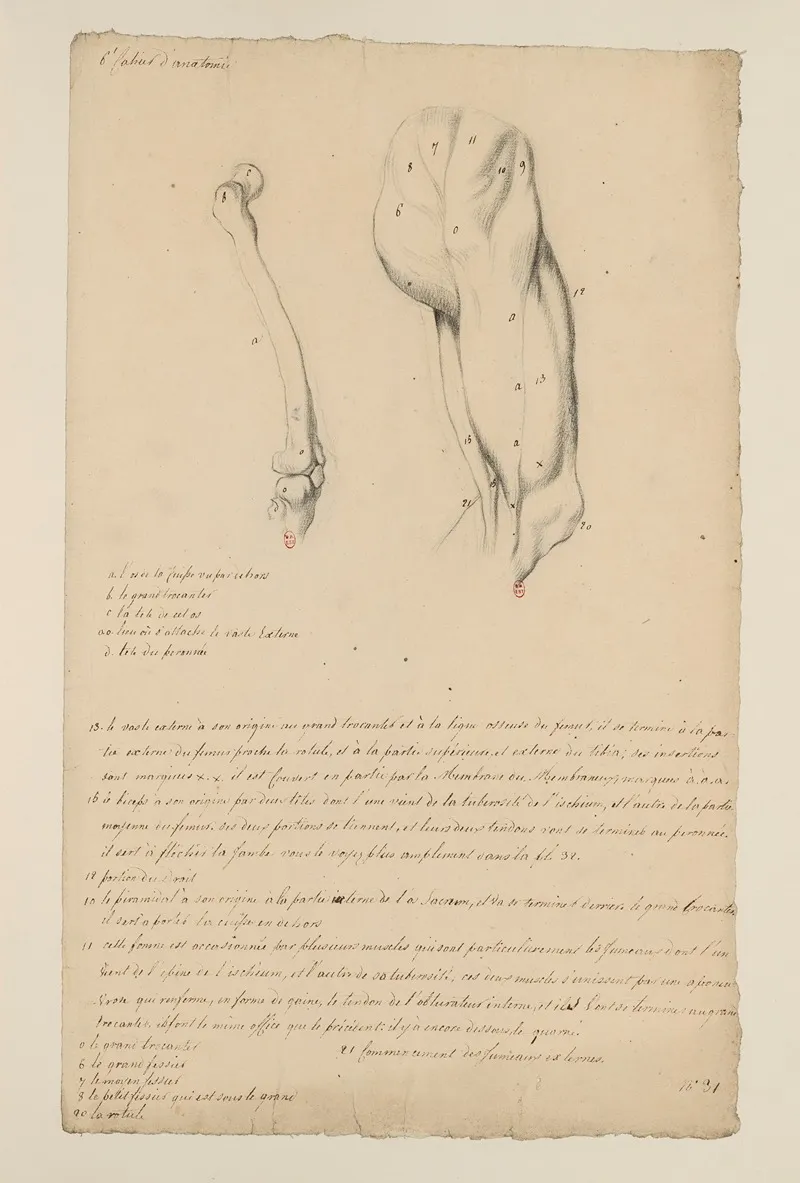 6ᵉ Cahier d'anatomie
c
b
a
o
o
7
11
8
10
9
6
o
12
a
a
13
a
15
x
15
21
x
20
a. l'os de la Cuisse vu par dehors
b. le grand trocanter
c la tete de cet os
ao lieu où s'attache le vaste Externe
d. tete du peronnée
13. le vaste externe à son origine au grand trocanter et à la ligne osseuse du femur, il se termine à la par-
tie externe du femur proche la rotule, et à la partie superieure et externe du tibia; ses insertions
sont marquées x. x. il est Couvert en partie par la Membrane du Membraneux, marquée à.a.a.
15 le biceps à son origine par deux têtes dont l'une vient de la tuberosité de l'ischium, et l'autre de la partie
moyenne du femur. Ses deux portions se tiennent, et leurs deux tendons vont se terminer au peronnée.
il sert à flechir la Jambe vous le voyez plus amplement dans la fil 32.
12 portion du droit
10 le piramidal à son origine à la partie interne de l'os Sacrum, et Va se terminer derriere le grand trocanter,
il sert à porter la cuisse en dehors
11 cette forme est occasionnée par plusieurs muscles qui sont particulierement les Jumeaux dont l'un
Vient de l'epine de l'ischium, et l'autre de sa tuberosité, ces deux muscles s'unissent par une aponeu
Vrose qui renferme, en forme de gaine, le tendon de l'obturateur interne, et ils Vont se terminer au grand
trocanter, et font le même office que le précédent; il y à encore dessous le quarré.
o le grand trocanter
21 Commencement des Jumeaux externes.
6 le grand fessier
7 le moyen fessier
8 le petit fessier qui est sous le grand
20 la rotule
Nº 31